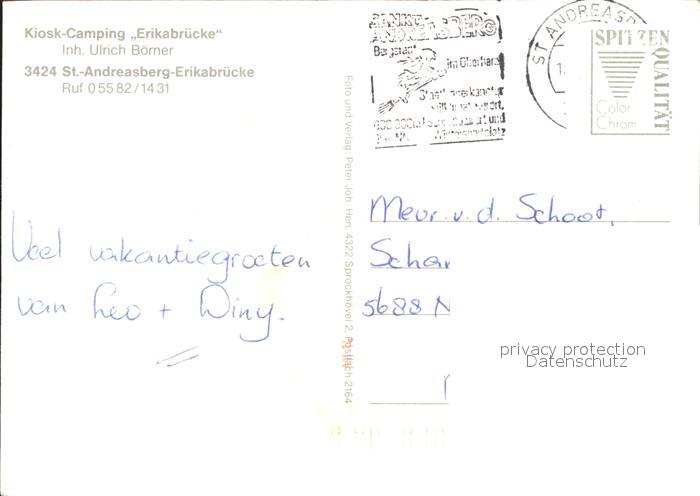 Kiosk-Camping „Erikabrücke“
Inh. Ulrich Börner
3424 St.-Andreasberg-Erikabrücke
Ruf 0 55 82 / 14 31
Veel vakantiegroeten
van Leo + Winy.
Foto und Verlag: Peter Joh. Hen. 4322 Sprockhövel 2, Postfach 2164
SANKT
ANDREASBERG
Bergstadt
im Oberharz
ST ANDREASB
SPITZEN
QUALITÄT
Color
Chrom
Mevr. v. d. Schoot,
Schar
5688 N
privacy protection
Datenschutz